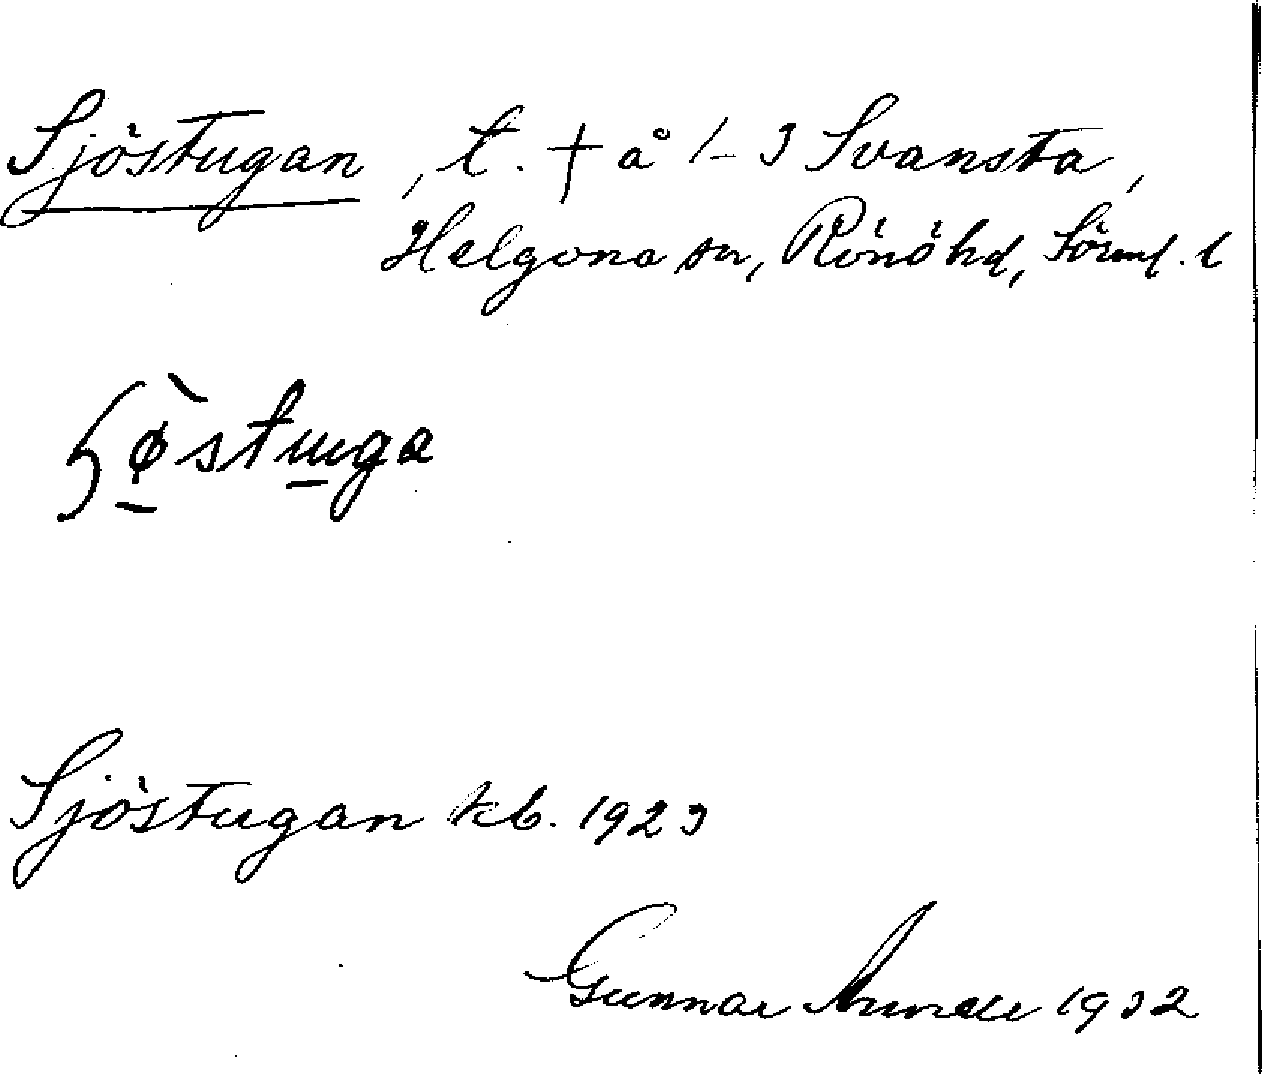 Sjöstugan, t. † å 1-3 Svansta,
Helgona sn, Rönö hd, Sörml. l
Sjöstugan kb. 1923
Gunnar 1932